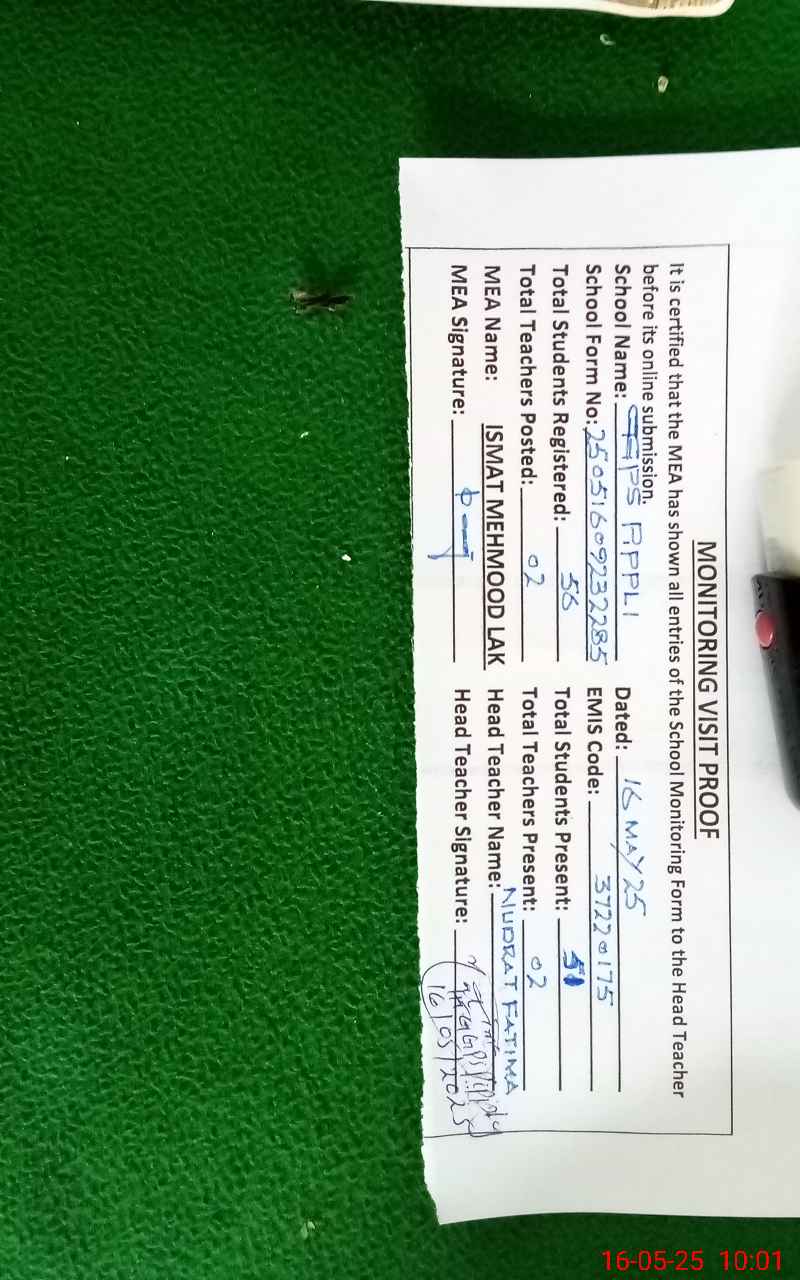 MONITORING VISIT PROOF
It is certified that the MEA has shown all entries of the School Monitoring Form to the Head Teacher
before its online submission.
School Name: GGPS PIPPLI Dated: 16 MAY 25
School Form No: 25051609232285 EMIS Code: 37220175
Total Students Registered: 56 Total Students Present: 51
Total Teachers Posted: 02 Total Teachers Present: 02
MEA Name: ISMAT MEHMOOD LAK Head Teacher Name: NUDRAT FATIMA
MEA Signature: Head Teacher Signature:
16/05/2025
16-05-25 10:01